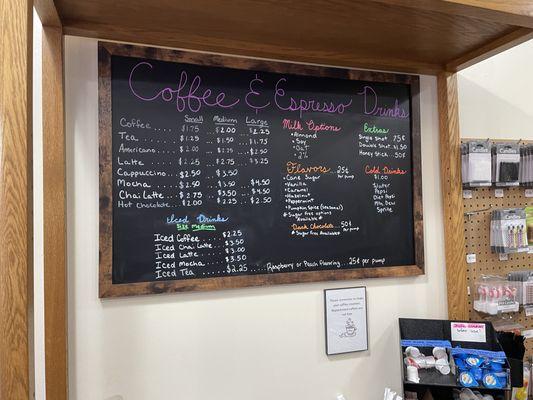 Coffee & Espresso Drinks
Small Medium Large
Coffee .... $1.75 ... $2.00 .. $2.25
Tea ....... $1.25 ... $1.50 .. $1.75
Americano .. $2.00 ... $2.50
Latte ..... $2.25 ... $2.75 ... $3.25
Cappuccino ... $2.50 ... $3.50
Mocha ..... $2.50 ... $3.50 ... $4.50
Chai Latte .... $2.75 ... $3.50 ... $4.50
Hot Chocolate .. $2.00 ... $2.25 ... $2.50
Iced Drinks
Size Medium
Iced Coffee ..... $2.25
Iced Chai Latte .... $3.50
Iced Latte ....... $3.00
Iced Mocha ...... $3.50
Iced Tea ....... $2.25 ... Raspberry or Peach Flavoring ... 25¢ per pump
Milk Options
Almond
Soy
Oat
2%
Flavors .. 25¢ per pump
Cane Sugar
Vanilla
Caramel
Hazelnut
Peppermint
Pumpkin Spice (seasonal)
Sugar free options Available
Dark Chocolate .. 50¢ per pump
Sugar free Available
Extras
Single Shot 75¢
Double Shot $1.50
Honey Stick .. 50¢
Cold Drinks
$1.00
Pepsi
Diet Pepsi
Mtn. Dew
Sprite